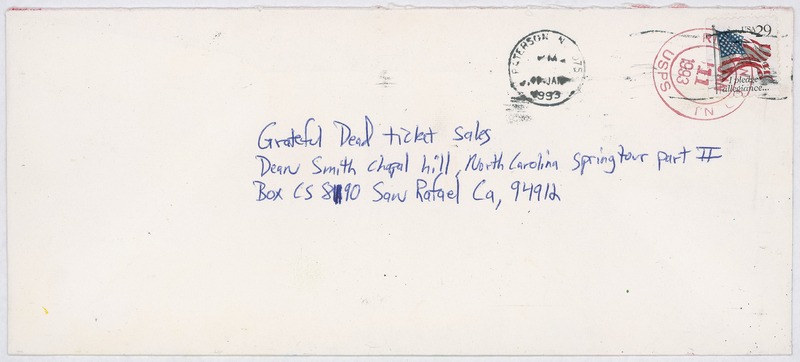 PATERSON N
PM
JAN
1993
USPS
11
1993
USA 29
I pledge
allegiance...
Grateful Dead ticket sales
Dean Smith chapal hill, North Carolina spring tour part II
Box CS 8190 San Rafael Ca, 94912